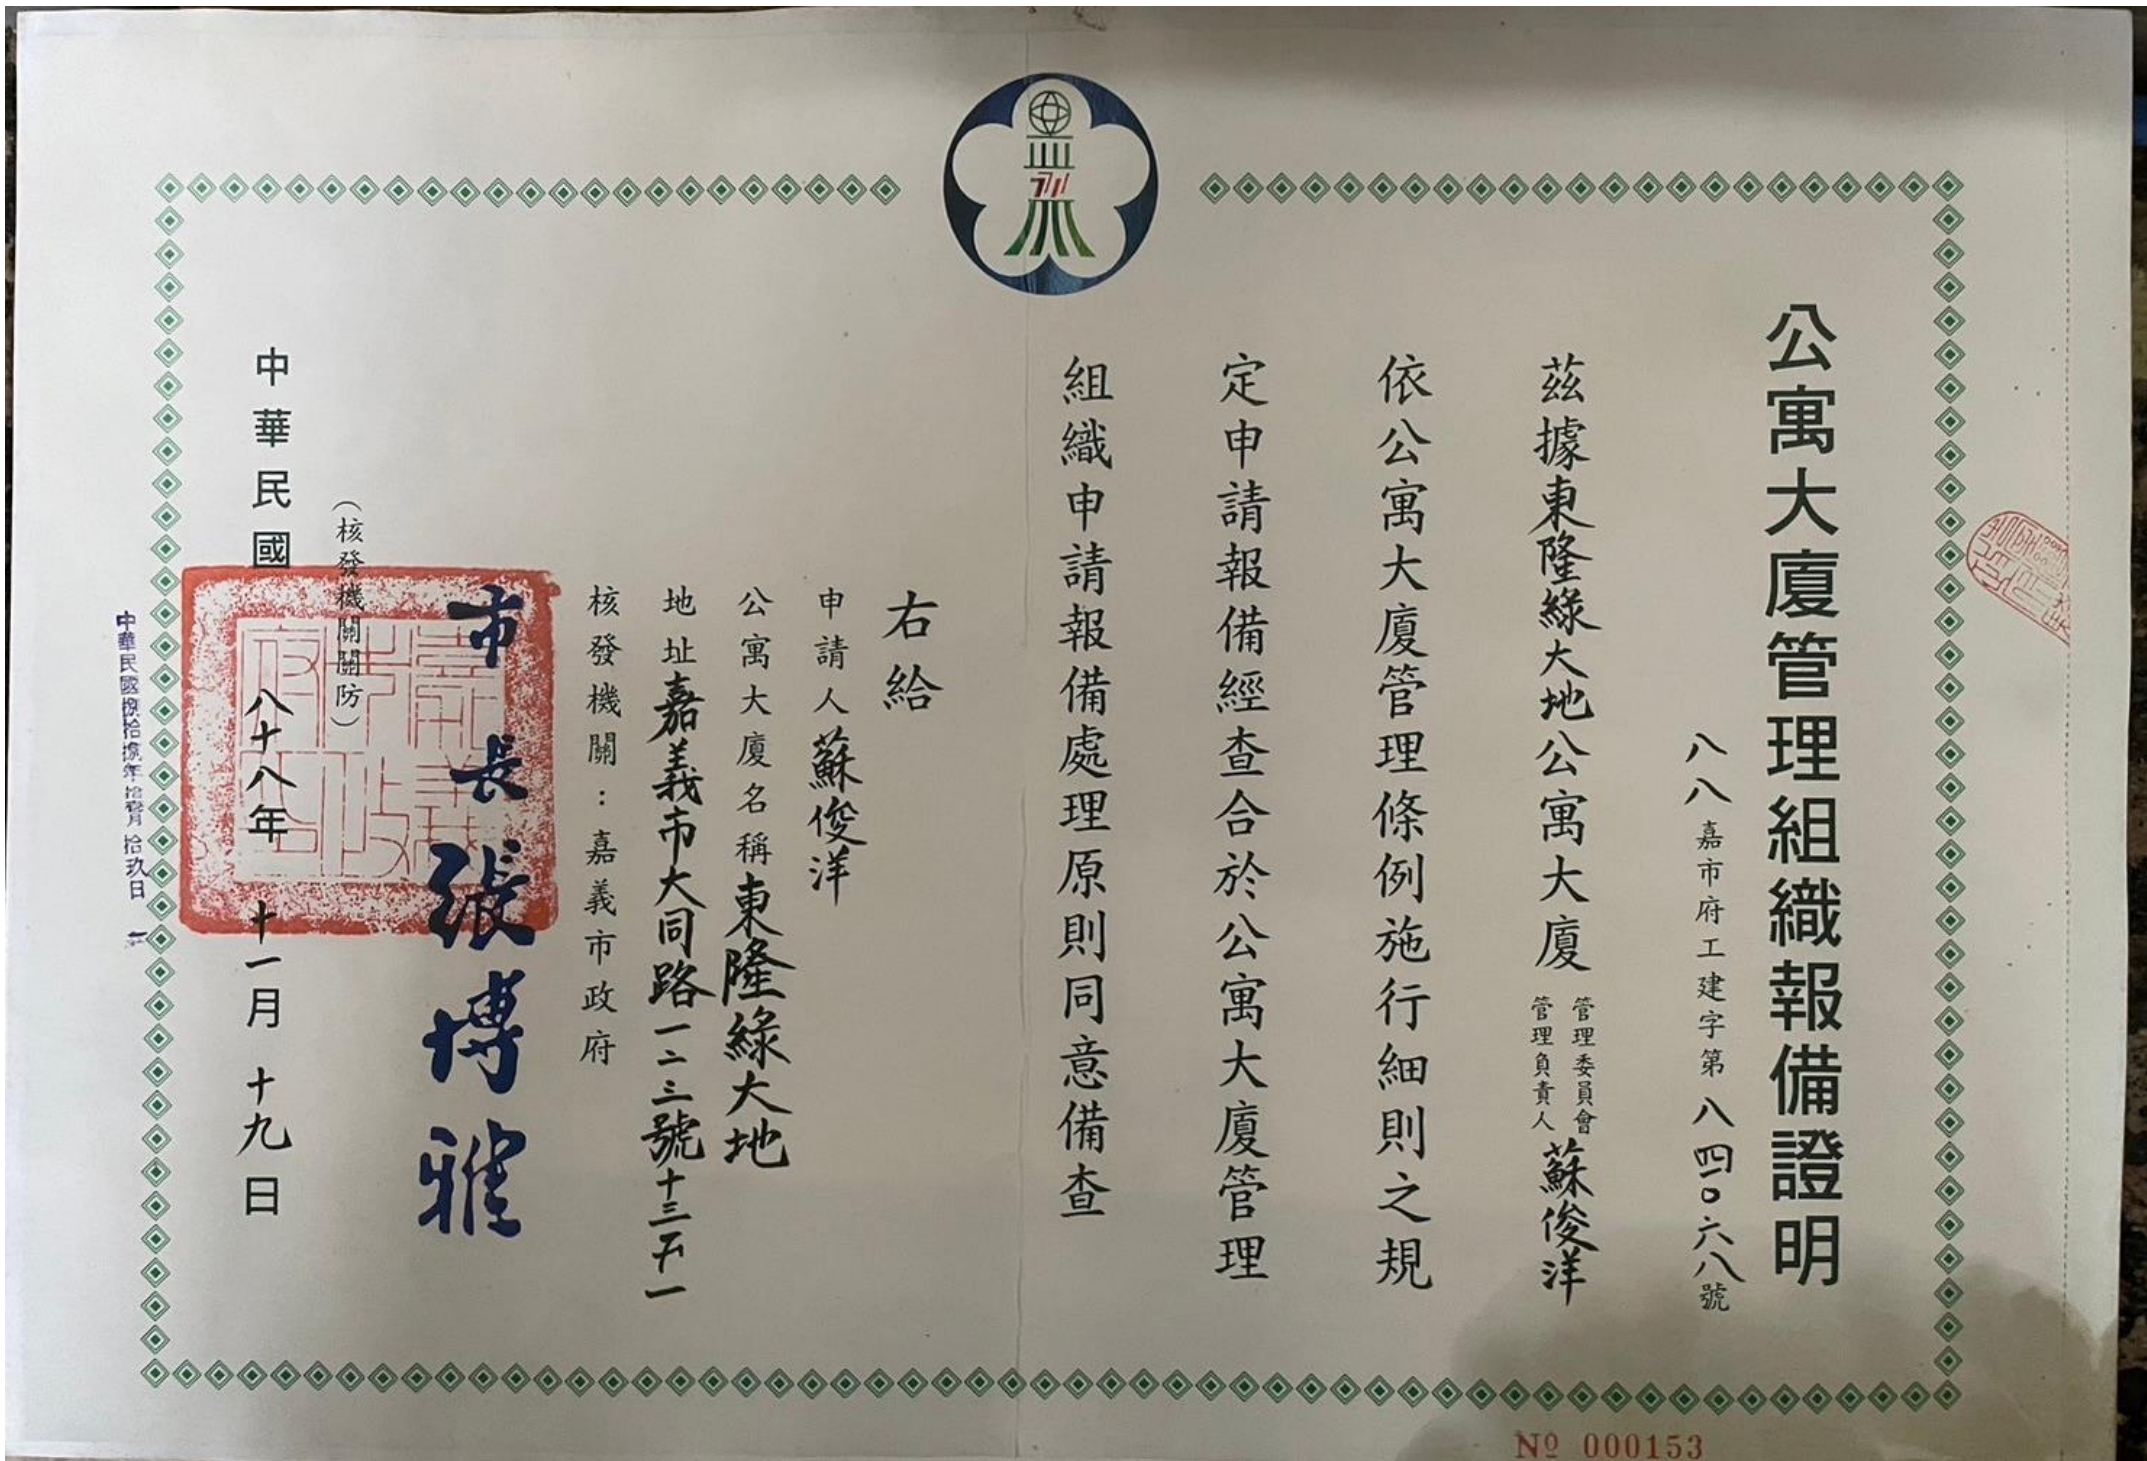 公寓大廈管理組織報備證明
八八嘉市府工建字第八四〇六八號
茲據東隆綠大地公寓大廈管理委員會管理負責人蘇俊洋
依公寓大廈管理條例施行細則之規
定申請報備經查合於公寓大廈管理
組織申請報備處理原則同意備查
右給
申請人蘇俊洋
公寓大廈名稱東隆綠大地
地址嘉義市大同路一二三號十三F五一
核發機關：嘉義市政府
市長張博雅
（核發機關關防）
嘉義市政府印
中華民國八十八年十一月十九日
中華民國捌拾捌年拾壹月拾玖日
№ 000153